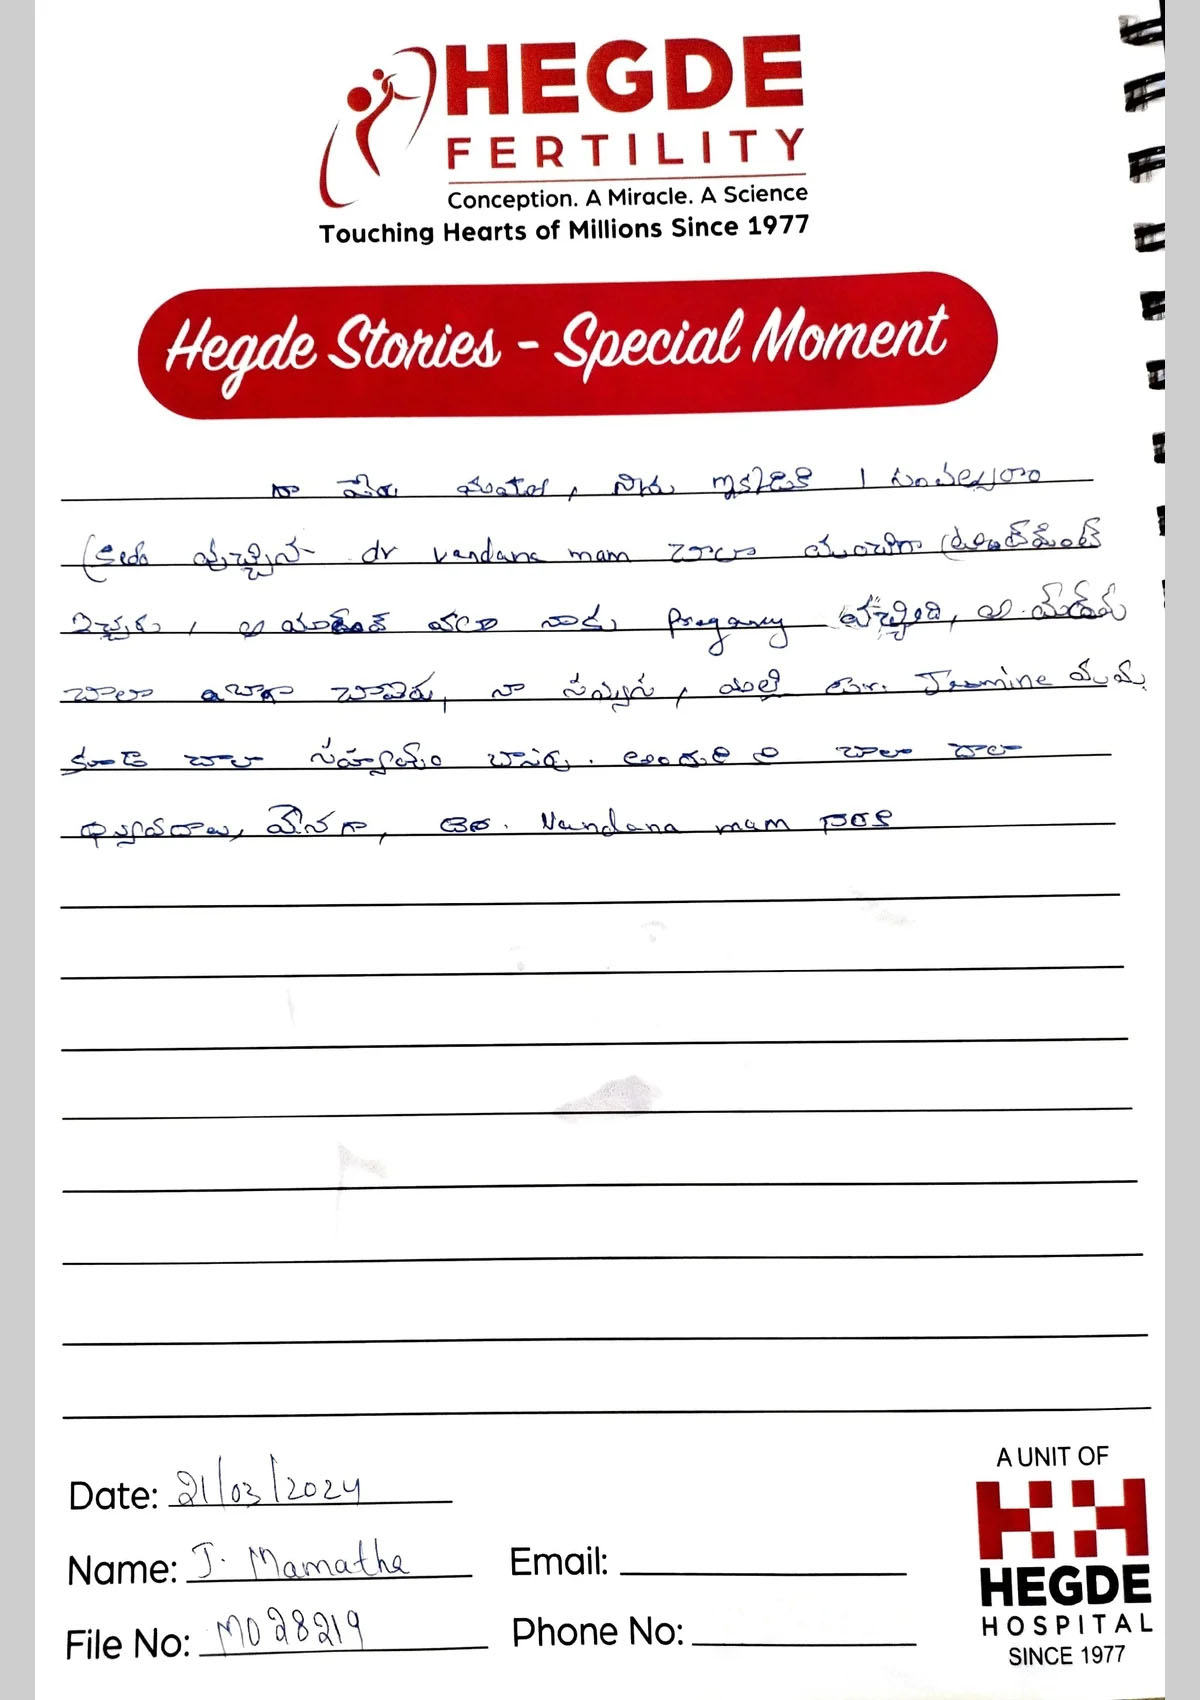 HEGDE
FERTILITY
Conception. A Miracle. A Science
Touching Hearts of Millions Since 1977
Hegde Stories - Special Moment
నా పేరు మమతా, నేను ఇక్కడికి 1 సంవత్సరం
క్రితం వచ్చిన dr vandana mam చాలా మంచిగా ట్రీట్‌మెంట్
ఇచ్చారు, ఆ వల్ల నాకు Pregancy వచ్చింది, ఆ మేడమ్
చాలా బాగా చూసారు, నా మల్లి Jasmine మమ్మ
కూడా చాలా సహాయం చాలా చాలా
ధన్యవాదాలు, Vandana mam
Date: 21/03/2024
Name: J. Mamatha
Email:
File No: M028219
Phone No:
A UNIT OF
HEGDE
HOSPITAL
SINCE 1977